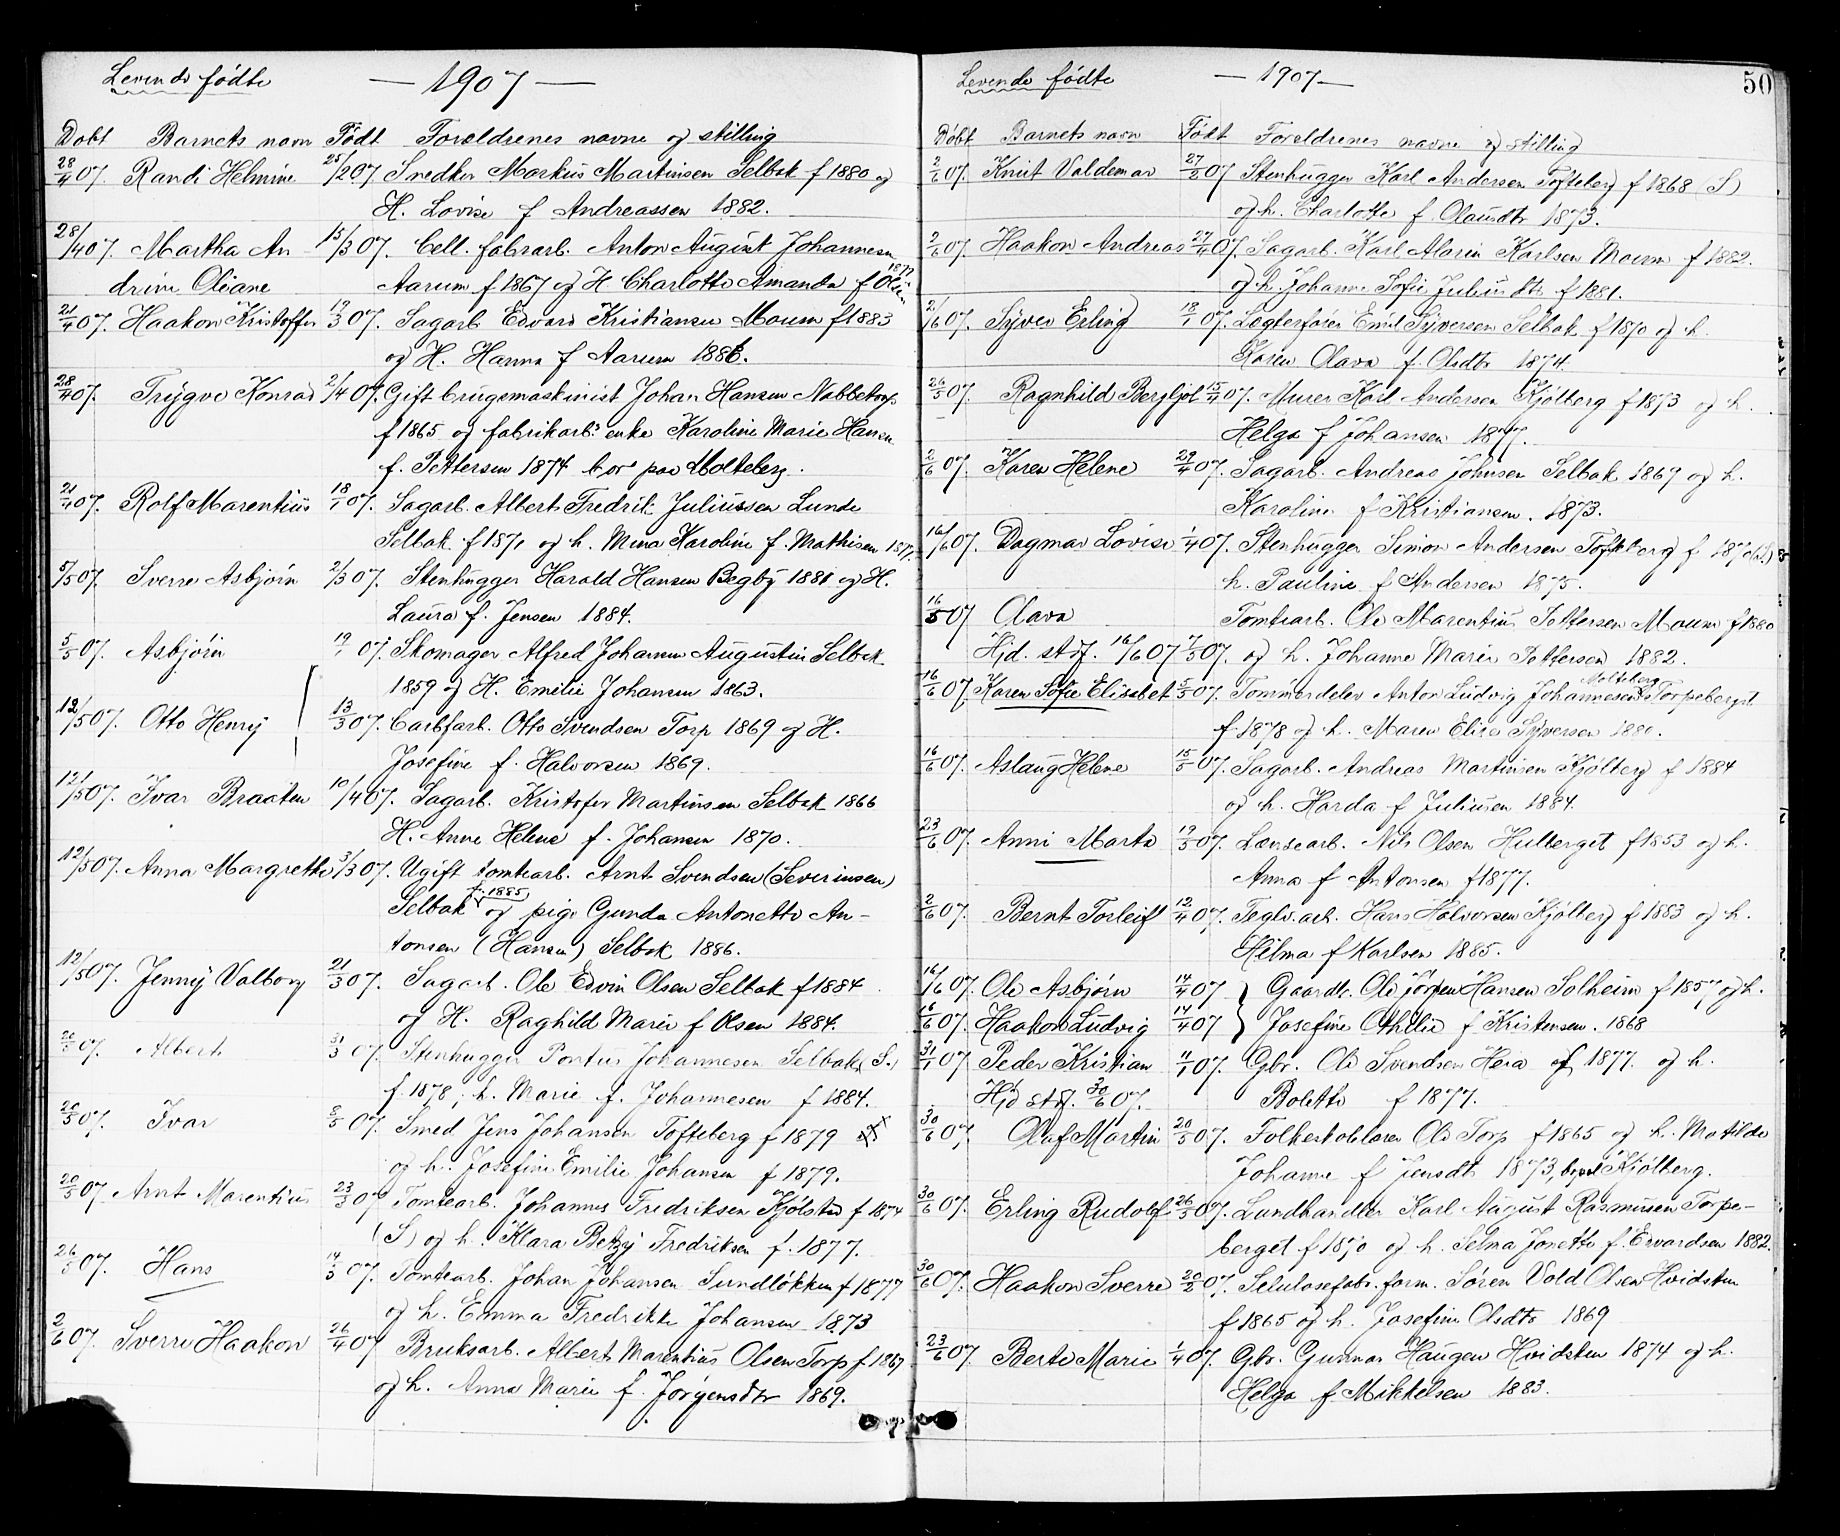 Levende fødte — 1907 —
Døbt Barnets navn Født Foreldrenes navne og stilling
28/4 07. Randi Helmine 25/2 07 Snedker Markus Martinsen Selbak f 1880 og
H. Lovise f Andreassen 1882.
28/4 07. Martha An- 15/3 07. Cell. fabrarb. Anton August Johannesen
drine Oliane Aarum f 1867 og H Charlotte Amanda f Olsen 1877
21/4 07. Haakon Kristoffer 19/3 07. Sagarb. Edvard Kristiansen Moum f 1883
og H. Hanna f Aarum 1886.
28/4 07. Trygve Konrad 2/4 07. Gift brugsmaskinist Johan Hansen Nabbetorp
f 1865 og fabrikarb. enke Karoline Marie Hansen
f. Pettersen 1874 bor paa Molteberg.
21/4 07. Rolf Marentius 18/1 07. Sagarb. Albert Fredrik Juliussen Lunde
Selbak f 1871 og h. Mina Karoline f. Mathisen 1877.
5/5 07. Sverre Asbjørn 2/3 07. Stenhugger Harald Hansen Begby 1881 og H.
Laura f. Jensen 1884.
5/5 07. Asbjørn 19/1 07. Skomager Alfred Johannes Augustin Selbak
1859 og H. Emilie Johansen 1863.
12/5 07. Otto Henry 13/3 07. Carbfarb. Otto Svendsen Torp 1869 og H.
Josefine f. Halvorsen 1869.
12/5 07. Ivar Braaten 10/4 07. Sagarb. Kristofer Martinsen Selbak 1866
H. Anne Helene f. Johansen 1870.
12/5 07. Anna Margrethe 3/3 07. Ugift tomtearb. Arnt Svendsen (Severinsen)
Selbak f. 1885 og pige Gunda Antonette An-
tonsen (Hansen) Selbak 1886.
12/5 07. Jenny Valborg 21/3 07. Sagarb. Ole Edvin Olsen Selbak f 1884
og H. Raghild Marie f Olsen 1884.
20/5 07. Albert 31/3 07. Stenhugger Pontus Johannesen Selbak, S.)
f. 1878, h. Marie f. Johannesen f 1884.
20/5 07. Ivar 8/5 07. Smed Jens Johansen Tofteberg f 1879
og h. Josefine Emilie Johansen f 1879.
20/5 07 Arnt Marentius 23/3 07 Tomtearb. Johannes Fredriksen Kjølstad f 1874
(S) og h. Klara Betzy Fredriksen f. 1877.
26/5 07. Hans 14/3 07. Tomtearb. Johan Johansen Sundløkken f 1877
og h. Emma Fredrikke Johansen 1873
2/6 07. Sverre Haakon 26/4 07 Bruksarb. Albert Marentius Olsen Torp f 1867
og h. Anna Marie f. Jørgensdtr 1869.
Levende fødte — 1907 — 50
Døbt Barnets navn Født Foreldrenes navne og stilling
2/6 07. Knut Valdemar 27/2 07 Stenhugger Karl Andersen Tofteberg f 1868 (S)
og h. Charlotte f. Olausdtr 1873.
2/6 07. Haakon Andreas 27/4 07. Sagarb. Karl Alarin Karlsen Moum f 1882.
og h. Johanne Sofie Juliusdtr f 1881.
2/6 07. Syver Erling 18/1 07. Lægterfører Emil Syversen Selbak f 1870 og h.
Karen Olava f. Olsdtr 1874.
26/5 07. Ragnhild Bergljot 15/4 07. Murer Karl Andersen Kjølberg f 1873 og h.
Helga f Johansen 1877.
2/6 07. Karen Helene 29/4 07. Sagarb. Andreas Johnsen Selbak 1867 og h.
Karoline f Kristiansen. 1873.
16/6 07. Dagmar Lovise 1/4 07. Stenhugger Simon Andersen Tofteberg f 1870 (S)
h. Pauline f Andersen 1875.
16/5 07 Olava Tomtearb. Ole Marentius Pettersen Moum f 1880
Hjd. stdf. 16/6 07 7/5 07. og h. Johanne Marie Pettersen 1882.
16/6 07. Karen Sofie Elisabet 5/5 07. Tømmerdeler Anton Ludvig Johannesen Molteberg Torpeberget
f 1878 og h. Maren Elise Syversen 1880.
16/6 07. Aslaug Helene 15/5 07. Sagarb. Andreas Martinsen Kjølberg f 1884
og h. Harda f Juliusen 1884.
23/6 07. Anni Marta 19/5 07. Lænsearb. Nils Olsen Hulberget f 1853 og h.
Anna f Antonsen f 1877.
2/6 07. Bernt Torleif 12/4 07. Teglv.arb. Hans Halvorsen Kjølberg f 1883 og h.
Hilma f Karlsen 1885.
16/6 07. Ole Asbjørn 14/4 07 } Gaardb. Ole Jørgen Hansen Solheim f 1857 og h.
16/6 07. Haakon Ludvig 14/4 07 } Josefine Othilie f Kristensen. 1868
31/1 07. Peder Kristian 4/1 07. Gbr. Ole Svendsen Hera f 1877. og h.
Hjd stdf. 30/6 07. Bolette f 1877.
30/6 07. Olaf Martin 20/5 07. Folkeskolelærer Ole Torp f 1865 og h. Matilde
Johanne f Jensdtr 1873, bopæl Kjølberg.
30/6 07. Erling Rudolf 26/5 07. Lundhandler Karl August Rasmussen Torpe-
berget f 1870 og h. Selma Josette f. Evardsen 1882.
30/6 07. Haakon Sverre 20/2 07. Selulosefabr. form. Søren Vold Olsen Hvidsten
f 1865 og h. Josefine Olsdtr 1869
23/6 07. Berte Marie 1/4 07. Gbr. Gunnar Haugen Hvidsten 1874 og h.
Helga f Mikkelsen 1883.